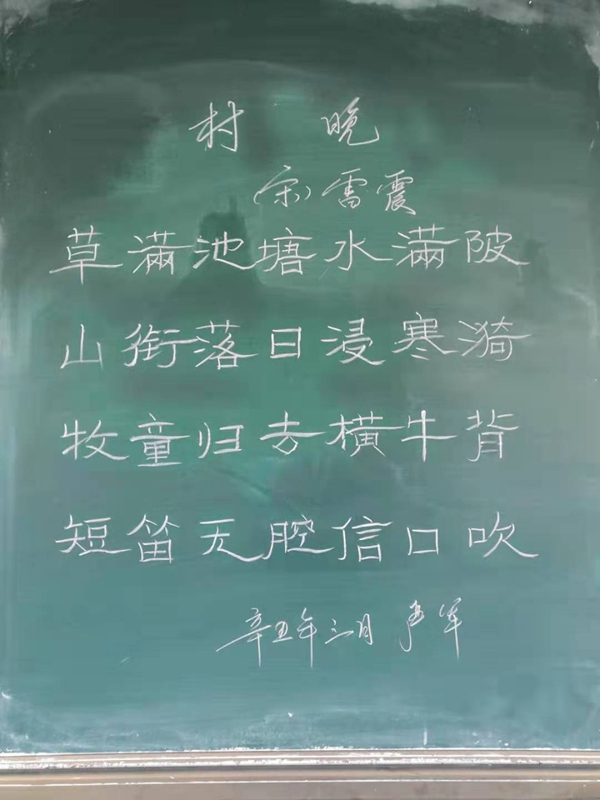 村 晚
(宋)雷震
草满池塘水满陂
山衔落日浸寒漪
牧童归去横牛背
短笛无腔信口吹
辛丑年三月 严军